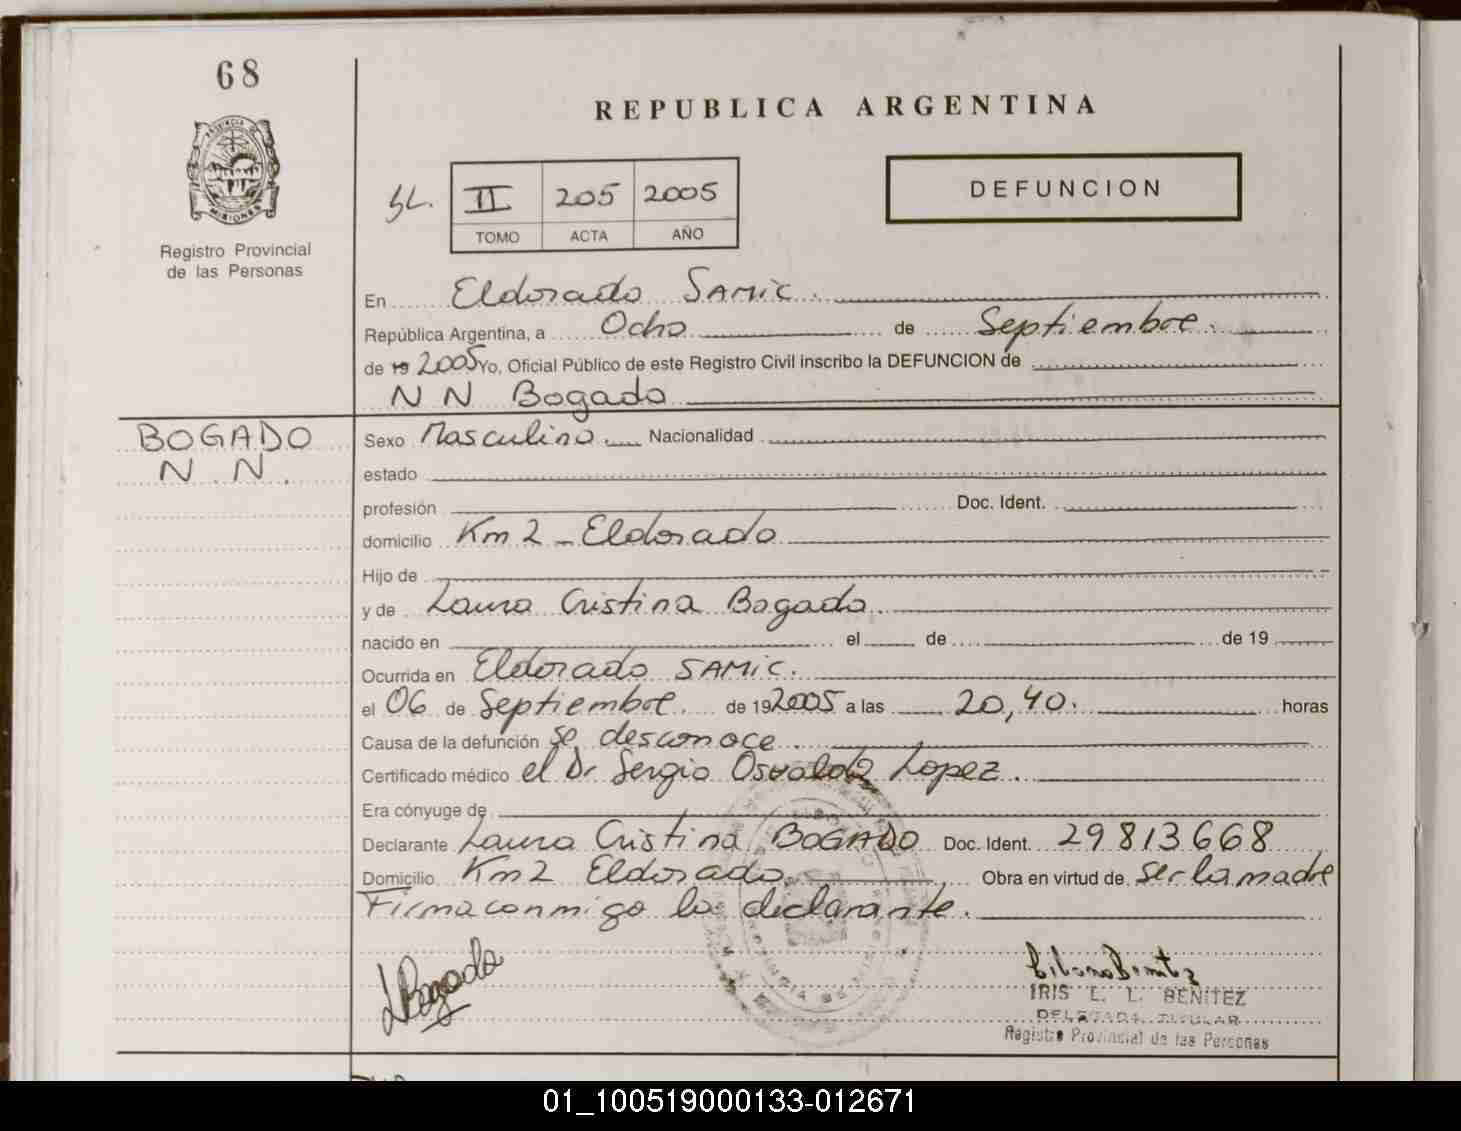 68
REPUBLICA ARGENTINA
PROVINCIA DE
MISIONES
Registro Provincial
de las Personas
II 205 2005
TOMO ACTA AÑO
DEFUNCION
En Eldorado SAMIC.
República Argentina, a Ocho de Septiembre.
de 19 2005 Yo, Oficial Público de este Registro Civil inscribo la DEFUNCION de
N N Bogado
BOGADO
N N.
Sexo Masculino. Nacionalidad
estado
profesión Doc. Ident.
domicilio Km 2 - Eldorado
Hijo de
y de Laura Cristina Bogado.
nacido en el de de 19
Ocurrida en Eldorado SAMIC.
el 06 de Septiembre. de 19 2005 a las 20,40. horas
Causa de la defunción se desconoce.
Certificado médico el Dr Sergio Osvaldo Lopez.
Era cónyuge de
Declarante Laura Cristina BOGADO Doc. Ident. 29813668
Domicilio Km2 Eldorado. Obra en virtud de ser la madre
Firma conmigo la declarante.
LBogado
IRIS L. L. BENITEZ
DELEGADA TITULAR
Registro Provincial de las Personas
01_100519000133-012671